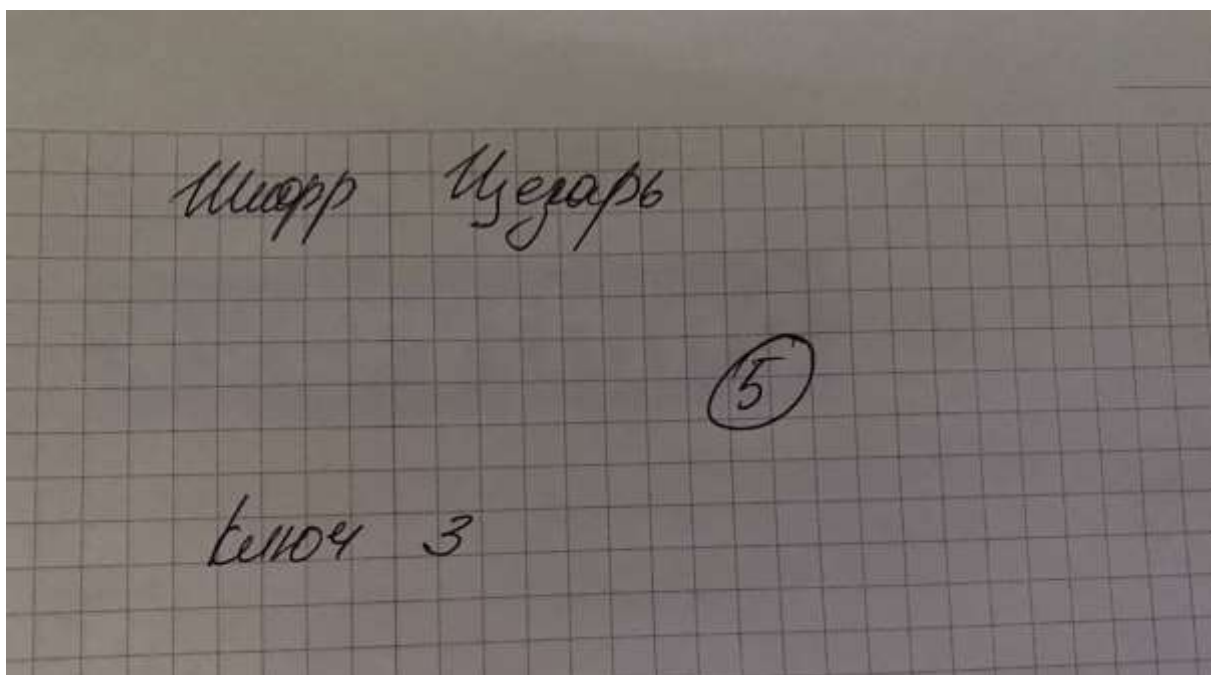 Шифр Цезарь
5
Ключ 3